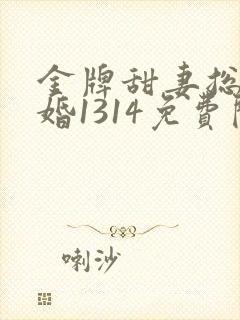 金牌甜妻总
婚1314免费
喇沙